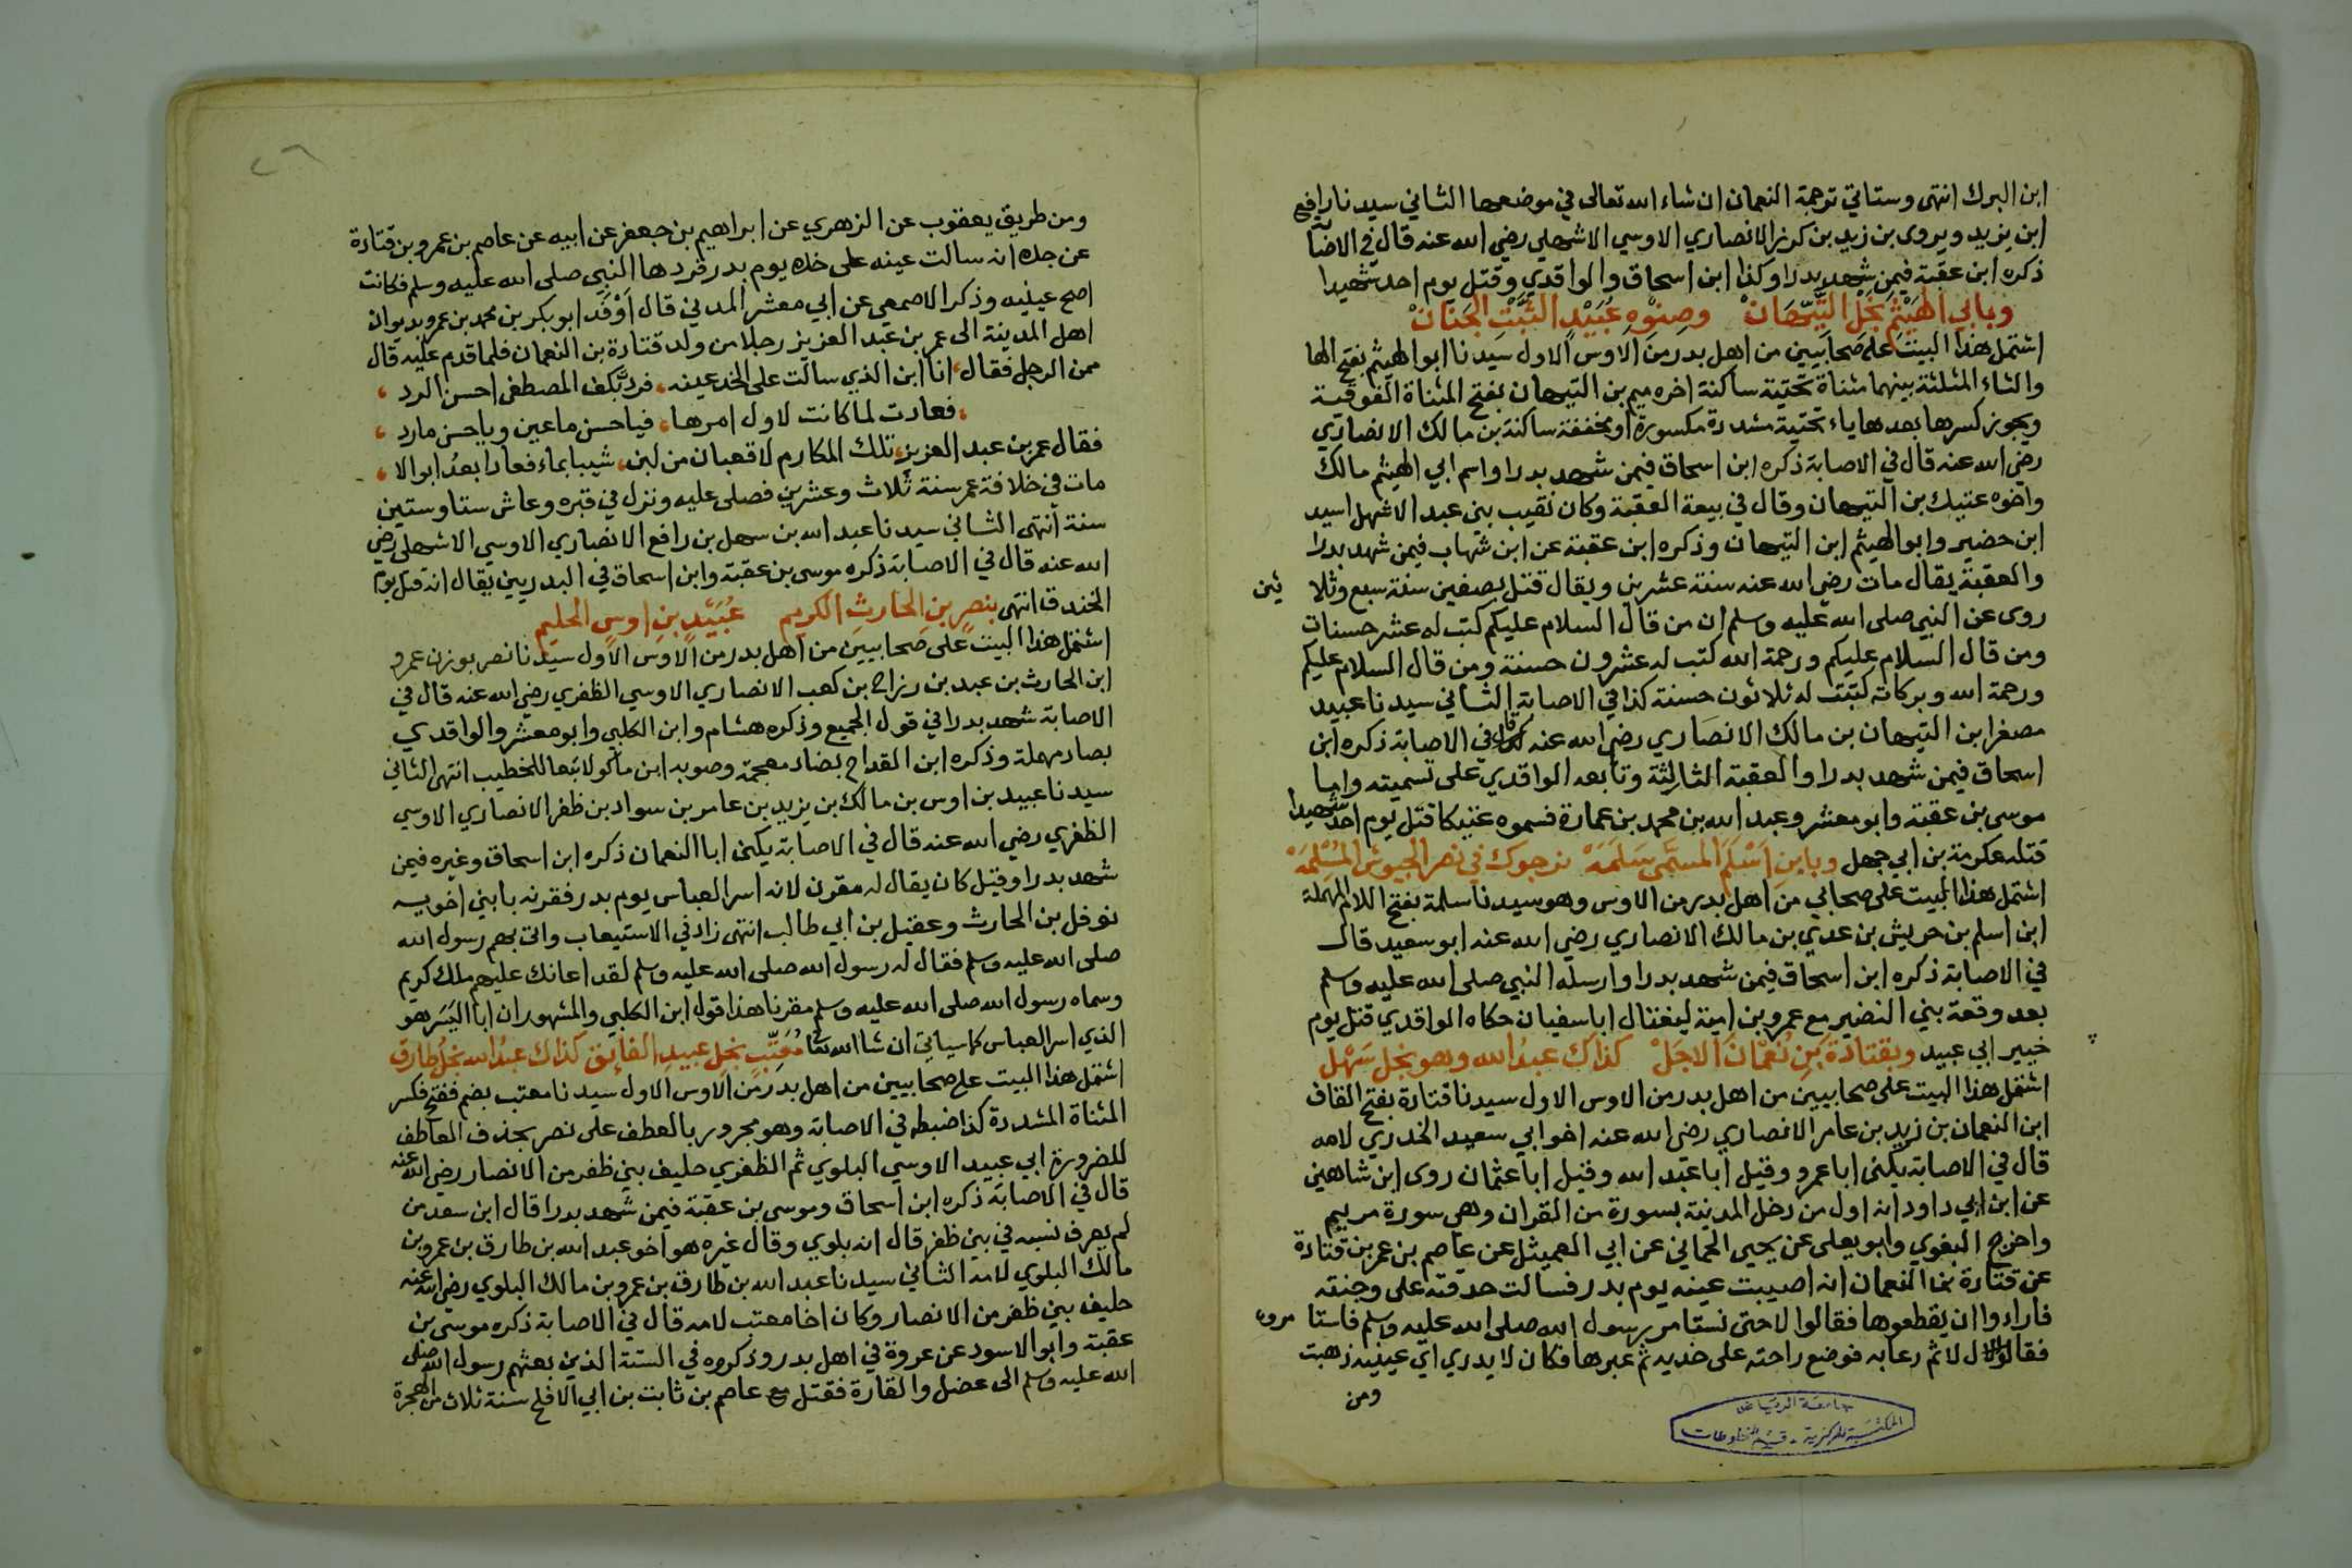 ابن البرك انتهى وستاتي ترجمة النعمان ان شاء الله تعالى في موضعها الثاني سيدنا رافع
ابن يزيد ويروى بن زيد بن كرز الانصاري الاوسي الاشهلي رضي الله عنه قال في الاصابة
ذكره ابن عقبة فيمن شهد بدرا وكذا ابن اسحاق والواقدي وقتل يوم احد شهيدا
وبابي الهَيْثَمِ نَجْلِ التَّيِّهَانْ وصِنْوِهِ عُبَيْدٍ الثَّبْتِ الجَنَانْ
اشتمل هذا البيت على صحابيين من اهل بدر من الاوس الاول سيدنا ابو الهيثم بفتح الها
والثاء المثلثة بينهما مثناة تحتية ساكنة اخره ميم بن التيهان بفتح المثناة الفوقية
ويجوز كسرها بعدها ياء تحتية مشددة مكسورة او مخففة ساكنة بن مالك الانصاري
رضي الله عنه قال في الاصابة ذكره ابن اسحاق فيمن شهد بدرا واسم ابي الهيثم مالك
واخوه عتيك بن التيهان وقال في بيعة العقبة وكان نقيب بني عبد الاشهل اسيد
ابن حضير وابو الهيثم ابن التيهان وذكره ابن عقبة عن ابن شهاب فيمن شهد بدرا
والعقبة يقال مات رضي الله عنه سنة عشرين ويقال قتل بصفين سنة سبع وثلا ثين
روى عن النبي صلى الله عليه وسلم ان من قال السلام عليكم كتب له عشر حسنات
ومن قال السلام عليكم ورحمة الله كتب له عشرون حسنة ومن قال السلام عليكم
ورحمة الله وبركاته كتبت له ثلاثون حسنة كذا في الاصابة الثاني سيدنا عبيد
مصغرا بن التيهان بن مالك الانصاري رضي الله عنه قال في الاصابة ذكره ابن
اسحاق فيمن شهد بدرا والعقبة الثالثة وتابعه الواقدي على تسميته واما
موسى بن عقبة وابو معشر وعبد الله بن محمد بن عمارة فسموه عتيكا قتل يوم احد شهيدا
قتله عكرمة بن ابي جهل وبابنِ اَسْلَمَ المسَمَّى سَلَمَهْ نرجوك في نصر الجيوش المُسْلِمَهْ
اشتمل هذا البيت على صحابي من اهل بدر من الاوس وهو سيدنا سلمة بفتح اللام المهملة
ابن اسلم بن حريش بن عدي بن مالك الانصاري رضي الله عنه ابو سعيد قال
في الاصابة ذكره ابن اسحاق فيمن شهد بدرا وارسله النبي صلى الله عليه وسلم
بعد وقعة بني النضير مع عمرو بن امية ليغتال ابا سفيان حكاه الواقدي قتل يوم
خيبر ابي عبيد وبقتادةَ بنِ نُعْمَانَ الاَجَلْ كذاك عبدُ الله وهو نجل سَهْل
اشتمل هذا البيت على صحابيين من اهل بدر من الاوس الاول سيدنا قتادة بفتح القاف
ابن النعمان بن زيد بن عامر الانصاري رضي الله عنه اخو ابي سعيد الخدري لامه
قال في الاصابة يكنى ابا عمرو وقيل ابا عبد الله وقيل ابا عثمان روى ابن شاهين
عن ابن ابي داود انه اول من دخل المدينة بسورة من القران وهي سورة مريم
واخرج البغوي وابو يعلى عن يحيى الحماني عن ابي العميثل عن عاصم بن عمر بن قتادة
عن قتادة بن النعمان انه اصيبت عينه يوم بدر فسالت حدقته على وجنته
فارادوا ان يقطعوها فقالوا لا حتى نستامر رسول الله صلى الله عليه وسلم فاستا مروه
فقال لا ثم دعا به فوضع راحته على خديه ثم غمزها فكان لا يدري اي عينيه ذهبت
ومن
جامعة الرياض
المكتبة المركزية - قسم المخطوطات
٢٦
ومن طريق يعقوب عن الزهري عن ابراهيم بن جعفر عن ابيه عن عاصم بن عمرو بن قتادة
عن جده انه سالت عينه على خده يوم بدر فردها النبي صلى الله عليه وسلم فكانت
اصح عينيه وذكر الاصمعي عن ابي معشر المدني قال اَوْفَدَ ابو بكر بن محمد بن عمرو بديوان
اهل المدينة الى عمر بن عبد العزيز رجلا من ولد قتادة بن النعمان فلما قدم عليه قال
ممن الرجل فقال، انا ابن الذي سالت على الخد عينه، فردت بكف المصطفى احسن الرد ،
، فعادت لما كانت لاول امرها، فيا حسن ما عين ويا حسن ما رد ،
فقال عمر بن عبد العزيز، تلك المكارم لا قعبان من لبن، شيبا بماء فعادا بعدُ ابوالا ،
مات في خلافة عمر سنة ثلاث وعشرين فصلى عليه ونزل في قبره وعاش ستا وستين
سنة انتهى الثاني سيدنا عبد الله بن سهل بن رافع الانصاري الاوسي الاشهلي رضي
الله عنه قال في الاصابة ذكره موسى بن عقبة وابن اسحاق في البدريين يقال انه قتل يوم
الخندق انتهى بنصرِ بنِ الحارثِ الكريمِ عُبَيْدِ بنِ اوسٍ الحليم
اشتمل هذا البيت على صحابيين من اهل بدر من الاوس الاول سيدنا نصر بوزن عمرو
ابن الحارث بن عبد بن رزاح بن كعب الانصاري الاوسي الظفري رضي الله عنه قال في
الاصابة شهد بدرا في قول الجميع وذكره هشام وابن الكلبي وابو معشر والواقدي
بصاد مهملة وذكره ابن القداح بضاد معجمة وصوبه ابن ماكولا تبعا للخطيب انتهى الثاني
سيدنا عبيد بن اوس بن مالك بن يزيد بن عامر بن سواد بن ظفر الانصاري الاوسي
الظفري رضي الله عنه قال في الاصابة يكنى ابا النعمان ذكره ابن اسحاق وغيره فيمن
شهد بدرا وقيل كان يقال له مقرن لانه اسر العباس يوم بدر فقرنه بابني اخويه
نوفل بن الحارث وعقيل بن ابي طالب انتهى زاد في الاستيعاب واتى بهم رسول الله
صلى الله عليه وسلم فقال له رسول الله صلى الله عليه وسلم لقد اعانك عليهم ملك كريم
وسماه رسول الله صلى الله عليه وسلم مقرنا هذا قول ابن الكلبي والمشهور ان ابا اليَسَر هو
الذي اسر العباس كما سياتي ان شا الله تعا مُعَتِّبٍ نجلِ عبيدِ الفائق كذاك عبدُ الله نجلُ طارق
اشتمل هذا البيت على صحابيين من اهل بدر من الاوس الاول سيدنا معتب بضم ففتح فكسر
المثناة المشددة كذا ضبطه في الاصابة وهو مجرور بالعطف على نصر بحذف العاطف
للضرورة ابي عبيد الاوسي البلوي ثم الظفري حليف بني ظفر من الانصار رضي الله عنه
قال في الاصابة ذكره ابن اسحاق وموسى بن عقبة فيمن شهد بدرا قال ابن سعد من
لم يعرف نسبه في بني ظفر قال انه بلوي وقال غيره هو اخو عبد الله بن طارق بن عمرو بن
مالك البلوي لامه الثاني سيدنا عبد الله بن طارق بن عمرو بن مالك البلوي رضي الله عنه
حليف بني ظفر من الانصار وكان اخا معتب لامه قال في الاصابة ذكره موسى بن
عقبة وابو الاسود عن عروة في اهل بدر وذكروه في الستة الذين بعثهم رسول الله صلى
الله عليه وسلم الى عضل والقارة فقتل مع عاصم بن ثابت بن ابي الافلح سنة ثلاث من الهجرة